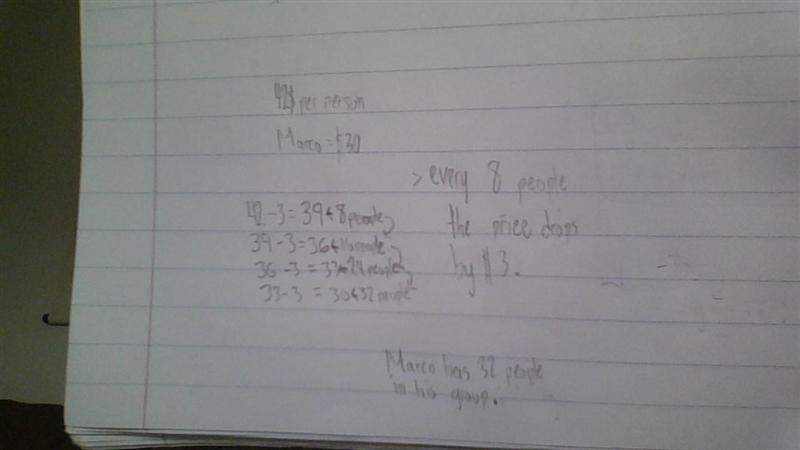 42$ per person
Marco = $30
> every 8 people
the price drops
by $3.
42 - 3 = 39 ← 8 people
39 - 3 = 36 ← 16 people
36 - 3 = 33 ← 24 people
33 - 3 = 30 ← 32 people
Marco has 32 people
in his group.